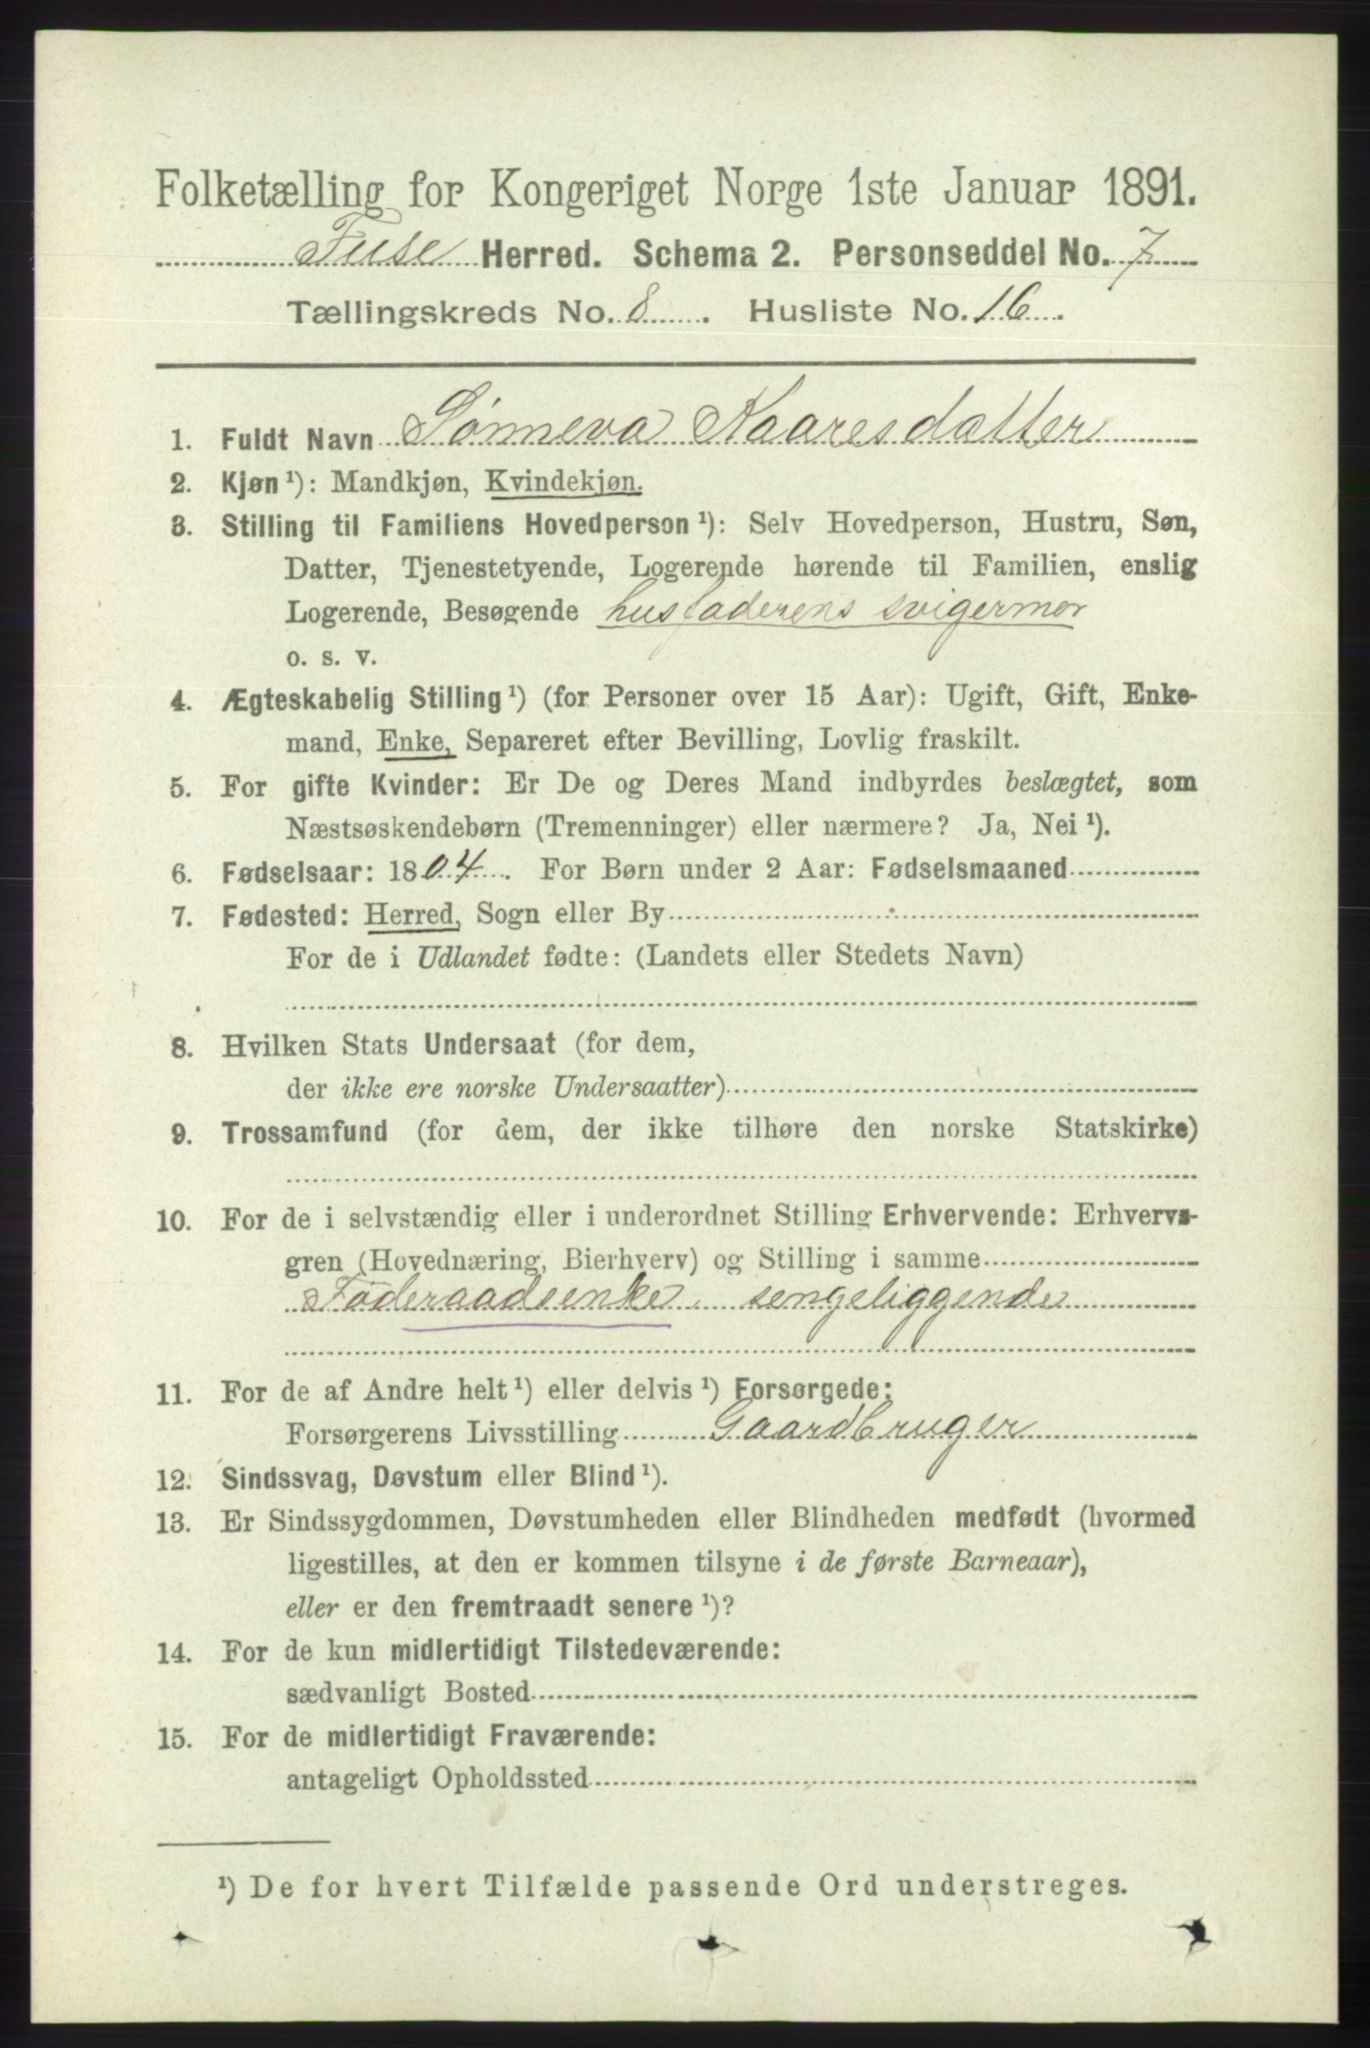 Folketælling for Kongeriget Norge 1ste Januar 1891.
Fuse Herred. Schema 2. Personseddel No. 7
Tællingskreds No. 8. Husliste No. 16.
1. Fuldt Navn Sønneva Kaaresdatter
2. Kjøn¹): Mandkjøn, Kvindekjøn.
3. Stilling til Familiens Hovedperson¹): Selv Hovedperson, Hustru, Søn,
Datter, Tjenestetyende, Logerende hørende til Familien, enslig
Logerende, Besøgende husfaderens svigermor
o. s. v.
4. Ægteskabelig Stilling¹) (for Personer over 15 Aar): Ugift, Gift, Enke-
mand, Enke, Separeret efter Bevilling, Lovlig fraskilt.
5. For gifte Kvinder: Er De og Deres Mand indbyrdes beslægtet, som
Næstsøskendebørn (Tremenninger) eller nærmere? Ja, Nei¹).
6. Fødselsaar: 1804. For Børn under 2 Aar: Fødselsmaaned
7. Fødested: Herred, Sogn eller By
For de i Udlandet fødte: (Landets eller Stedets Navn)
8. Hvilken Stats Undersaat (for dem,
der ikke ere norske Undersaatter)
9. Trossamfund (for dem, der ikke tilhøre den norske Statskirke)
10. For de i selvstændig eller i underordnet Stilling Erhvervende: Erhvervs-
gren (Hovednæring, Bierhverv) og Stilling i samme
Føderaadsenke, sengeliggende
11. For de af Andre helt¹) eller delvis¹) Forsørgede:
Forsørgerens Livsstilling Gaardbruger
12. Sindssvag, Døvstum eller Blind¹).
13. Er Sindssygdommen, Døvstumheden eller Blindheden medfødt (hvormed
ligestilles, at den er kommen tilsyne i de første Barneaar),
eller er den fremtraadt senere¹)?
14. For de kun midlertidigt Tilstedeværende:
sædvanligt Bosted
15. For de midlertidigt Fraværende:
antageligt Opholdssted
¹) De for hvert Tilfælde passende Ord understreges.